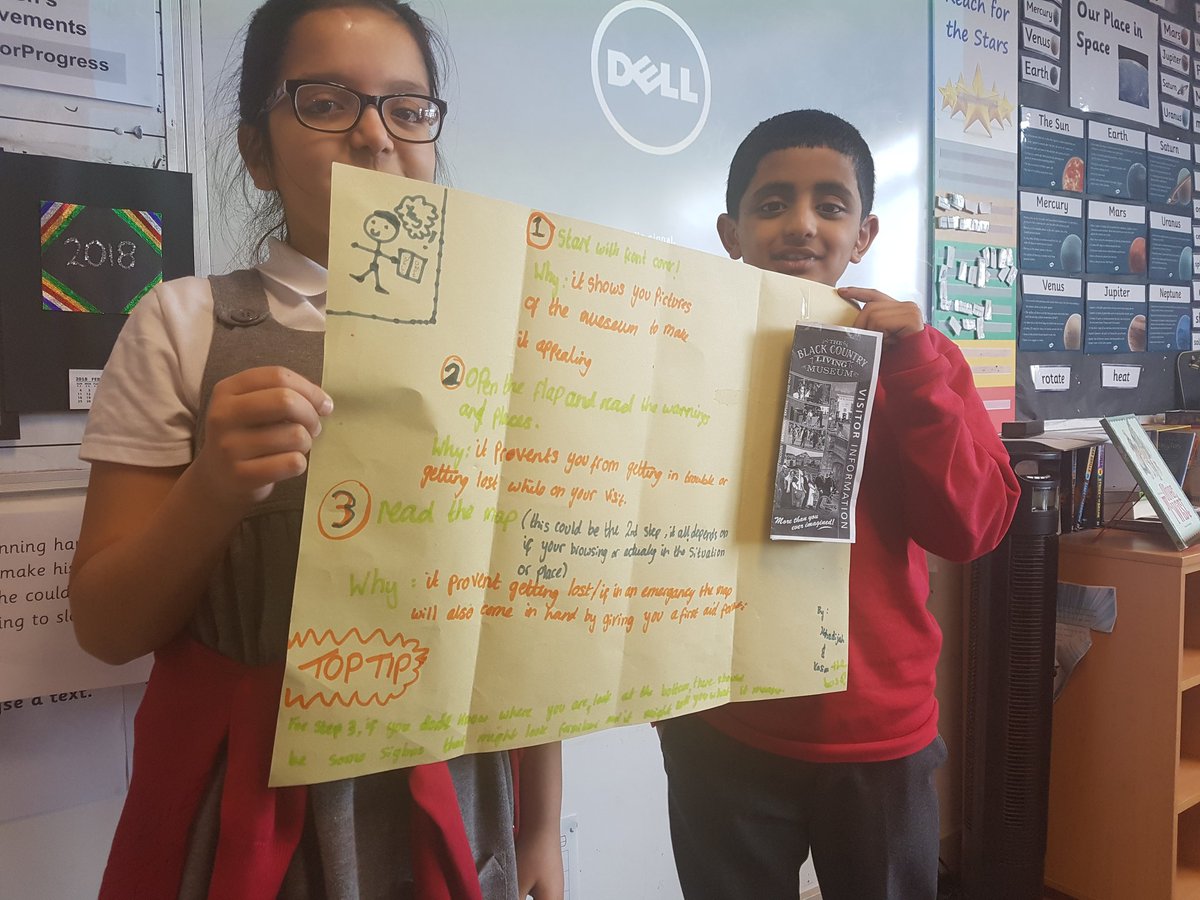 vements
orProgress
2018
2018
DELL
Reach for
the Stars
Our Place in
Space
Mercury
Venus
Earth
Mars
Jupiter
Saturn
Uranus
The Sun
Earth
Saturn
Mercury
Mars
Uranus
Venus
Jupiter
Neptune
rotate
heat
1 Start with front cover!
Why: it shows you pictures
of the museum to make
it appealing
2 Open the flap and read the warnings
and places.
Why: it prevents you from getting in trouble or
getting lost while on your visit.
3 read the map (this could be the 2nd step, it all depends on
if your browsing or actually in the situation
or place)
Why: it prevent getting lost/if in an emergency the map
will also come in hand by giving you a first aid
TOP TIP
For step 3, if you don't know where you are, look at the bottom, there should
be some signs that might look familiar and it might tell you what it means.
By:
&
THE
BLACK COUNTRY
LIVING
MUSEUM
VISITOR INFORMATION
More than you
ever imagined!
nning
make his
he could
ing to
se a text.